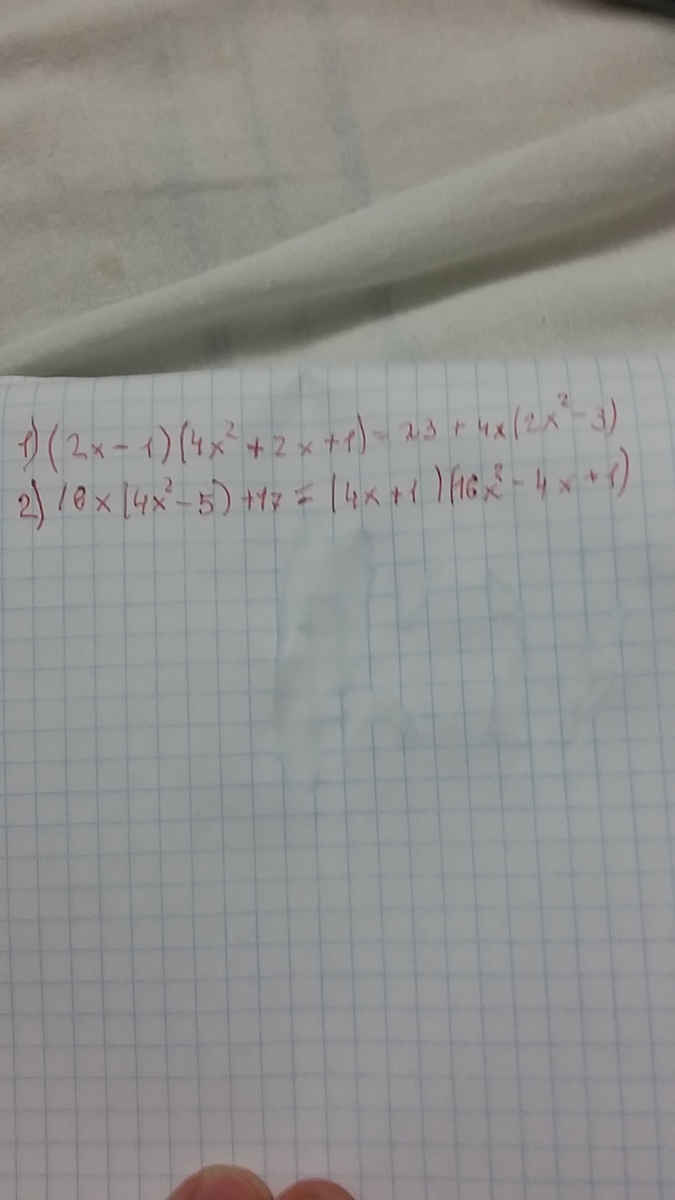 1) (2x - 1)(4x² + 2x + 1) = 23 + 4x(2x² - 3)
2) 16x(4x² - 5) + 17 = (4x + 1)(16x² - 4x + 1)